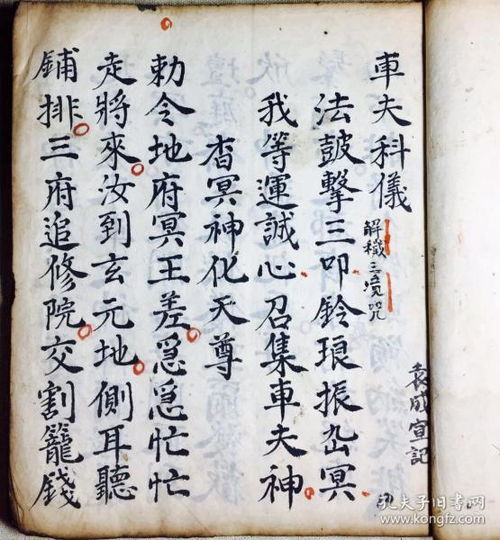 車夫科儀
解穢三境咒
袁成宣記
法鼓擊三叩鈴琅振幽冥
我等運誠心召集車夫神
杳冥神化天尊
勅令地府冥王差急急忙忙
走將來汝到玄元地側耳聽
鋪排三府追修院交割籠錢
孔夫子旧书网
www.kongfz.com